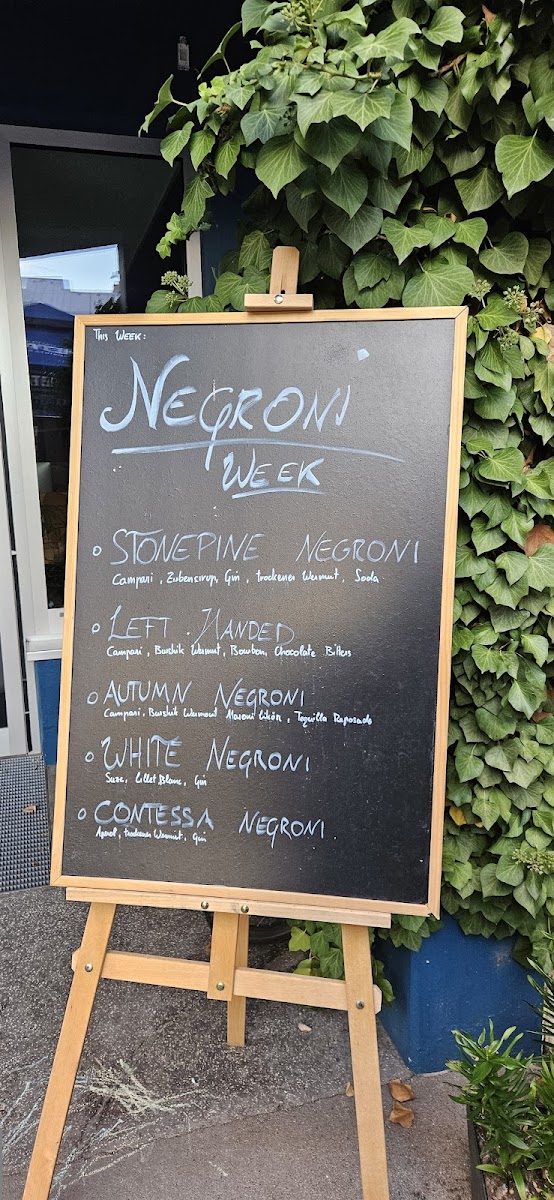 THIS WEEK:
NEGRONI
WEEK
STONEPINE NEGRONI
Campari, Zirbensirup, Gin, trockener Wermut, Soda
LEFT HANDED
Campari, Burschik Wermut, Bourbon, Chocolate Bitters
AUTUMN NEGRONI
Campari, Burschik Wermout Maroni Likör, Tequilla Reposado
WHITE NEGRONI
Suze, Lillet Blanc, Gin
CONTESSA NEGRONI
Aperol, trockener Wermut, Gin